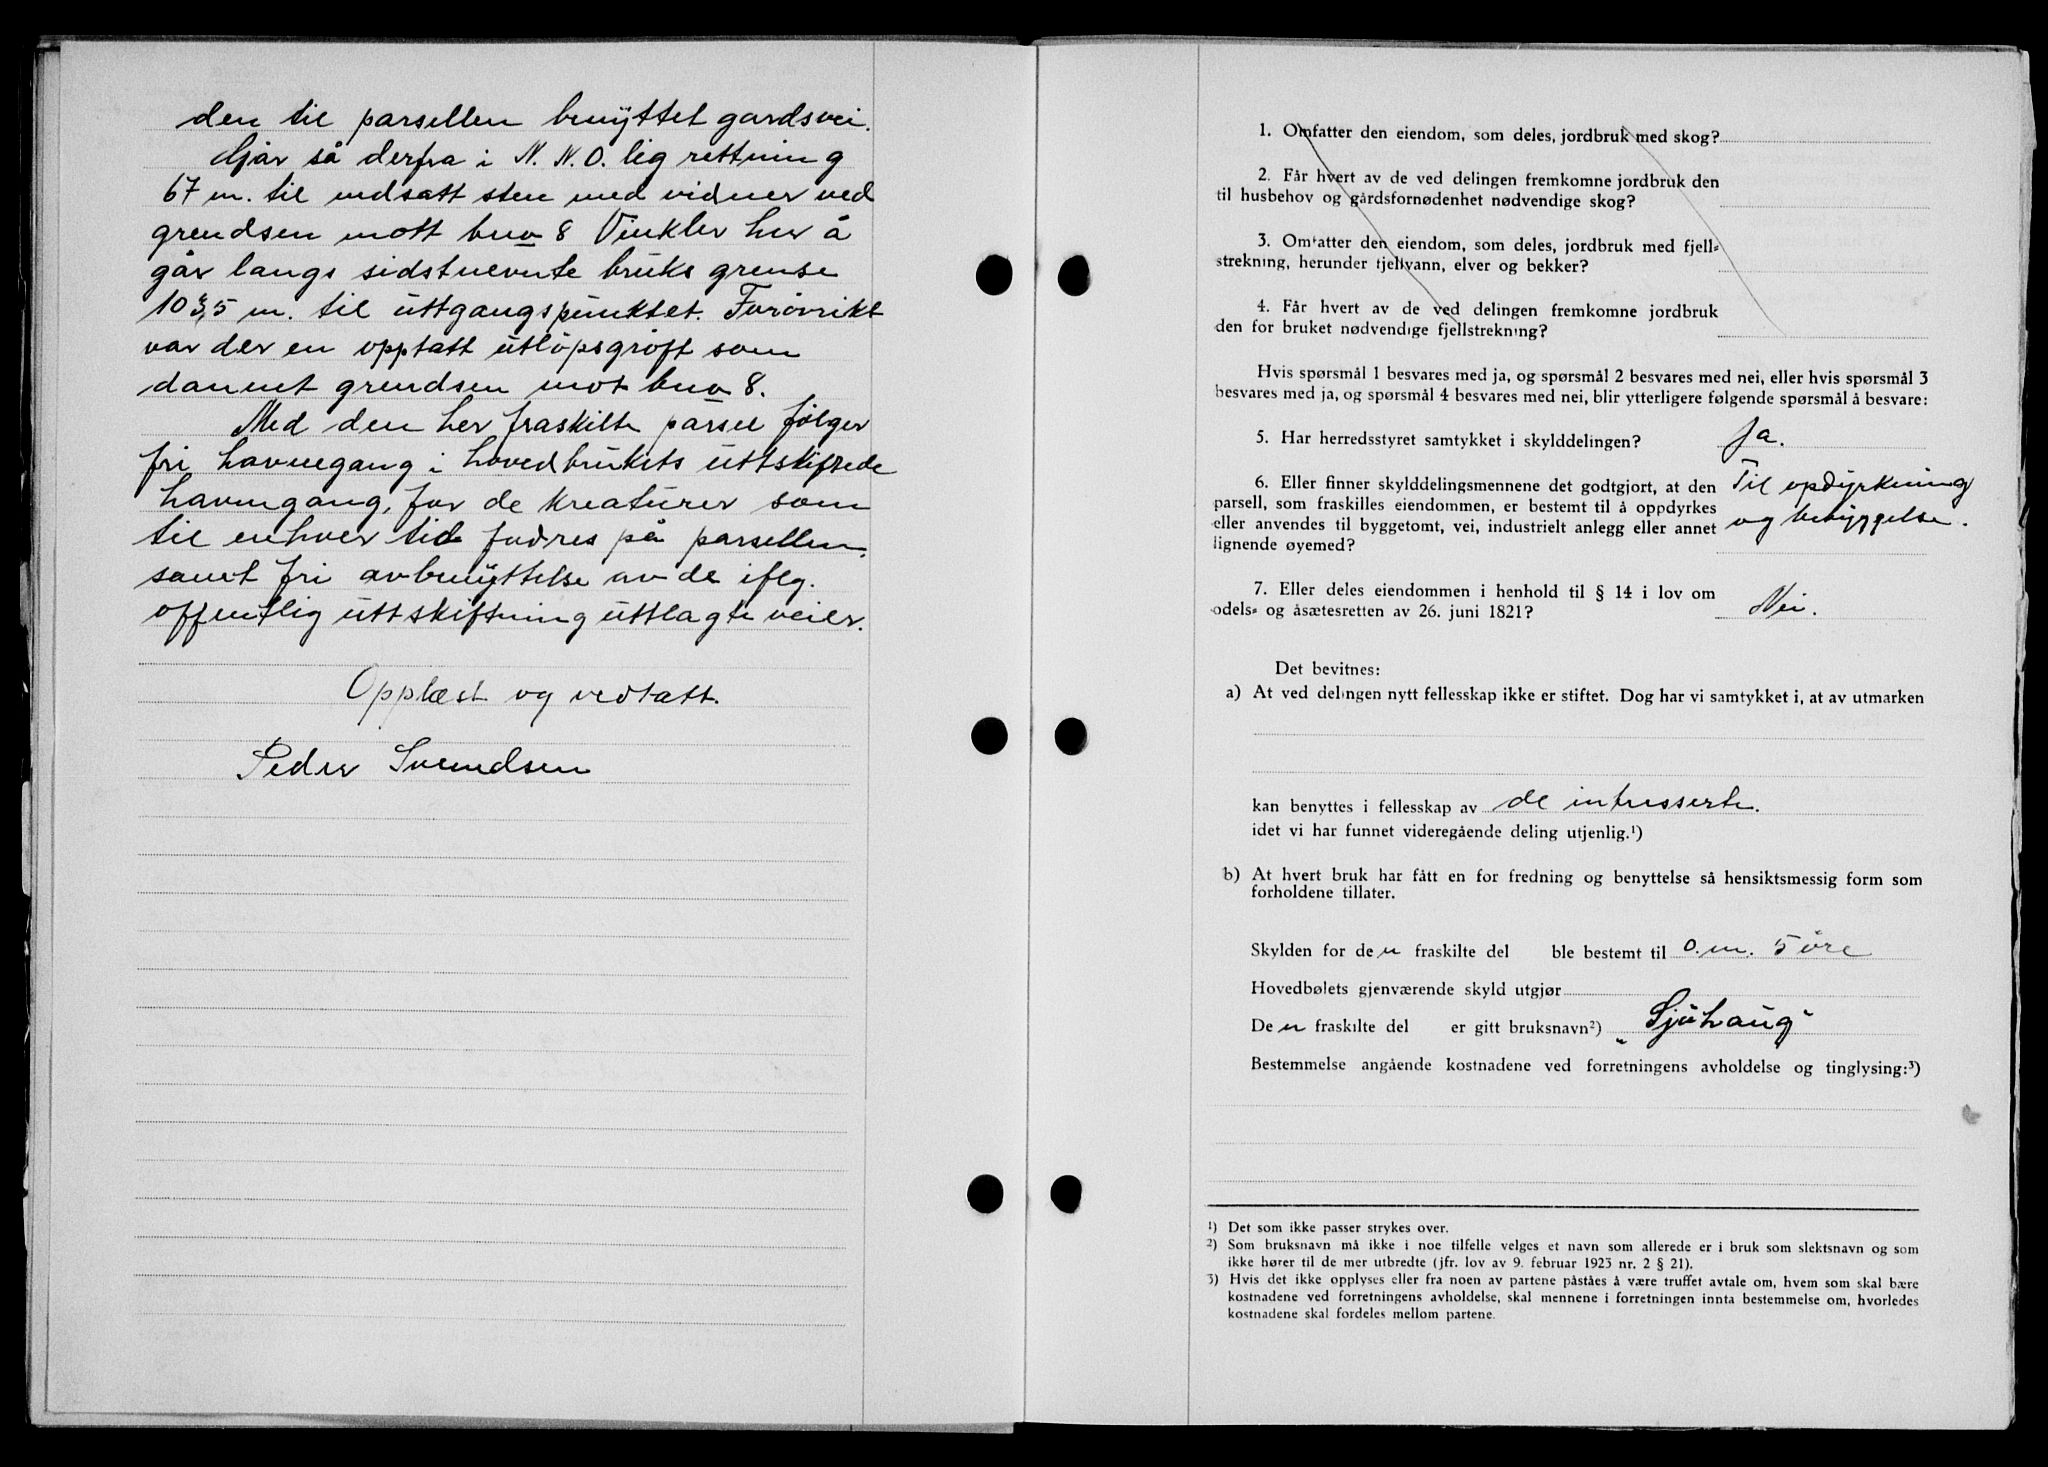 den til parsellen benyttet gardsvei.
Gjår så derfra i N. N. O. lig rettning
67 m. til nedsatt sten med vidner ved
grendsen mott bno 8 Vinkler her å
går langs sidstnevnte bruks grense
103,5 m. til uttgangspunktet. Forøvrikt
var der en opptatt utløpsgrøft som
dannet grendsen mot bno 8.
Med den her fraskilte parsel følger
fri havnegang i hovedbrukets uttskifsede
havnegang, for de kreaturer som
til enhver tid fødres på parsellen,
samt fri avbenyttelse av de iflg.
offentlig uttskiftning uttlagte veier.
Opplæst og vedtatt.
Peder Svendsen
1. Omfatter den eiendom, som deles, jordbruk med skog?
2. Får hvert av de ved delingen fremkomne jordbruk den
til husbehov og gårdsfornødenhet nødvendige skog?
3. Omfatter den eiendom, som deles, jordbruk med fjell-
strekning, herunder fjellvann, elver og bekker?
4. Får hvert av de ved delingen fremkomne jordbruk
den for bruket nødvendige fjellstrekning?
Hvis spørsmål 1 besvares med ja, og spørsmål 2 besvares med nei, eller hvis spørsmål 3
besvares med ja, og spørsmål 4 besvares med nei, blir ytterligere følgende spørsmål å besvare:
5. Har herredsstyret samtykket i skylddelingen? Ja.
6. Eller finner skylddelingsmennene det godtgjort, at den Til opdyrkning
parsell, som fraskilles eiendommen, er bestemt til å oppdyrkes
eller anvendes til byggetomt, vei, industrielt anlegg eller annet og bebyggelse.
lignende øyemed?
7. Eller deles eiendommen i henhold til § 14 i lov om
odels- og åsætesretten av 26. juni 1821? Nei.
Det bevitnes:
a) At ved delingen nytt fellesskap ikke er stiftet. Dog har vi samtykket i, at av utmarken
kan benyttes i fellesskap av de intresserte.
idet vi har funnet videregående deling utjenlig.¹)
b) At hvert bruk har fått en for fredning og benyttelse så hensiktsmessig form som
forholdene tillater.
Skylden for den fraskilte del ble bestemt til 0. m. 5 øre
Hovedbølets gjenværende skyld utgjør
Den fraskilte del er gitt bruksnavn²) „Sjøhaug"
Bestemmelse angående kostnadene ved forretningens avholdelse og tinglysing:³)
¹) Det som ikke passer strykes over.
²) Som bruksnavn må ikke i noe tilfelle velges et navn som allerede er i bruk som slektsnavn og som
ikke hører til de mer utbredte (jfr. lov av 9. februar 1923 nr. 2 § 21).
³) Hvis det ikke opplyses eller fra noen av partene påståes å være truffet avtale om, hvem som skal bære
kostnadene ved forretningens avholdelse, skal mennene i forretningen innta bestemmelse om, hvorledes
kostnadene skal fordeles mellom partene.